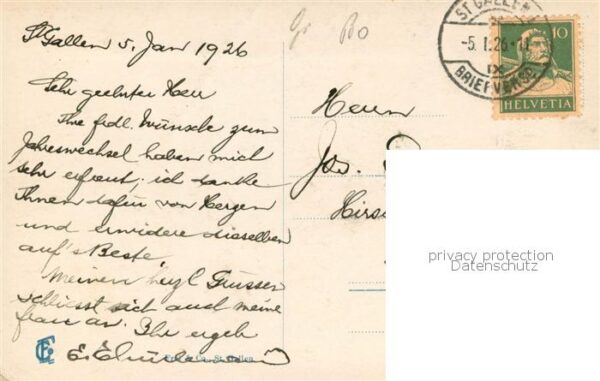 St Gallen 5. Jan 1926
Sehr geehrter Herr
Ihre frdl. Wünsche zum
Jahreswechsel haben mich
sehr erfreut; ich danke
Ihnen dafür von Herzen
und erwidere dieselben
auf's Beste
Meinen herzl Grüssen
schliesst sich auch meine
Frau an. Ihr ergeb
E.
St. Gallen
Gr Bo
Herrn
Jos.
Hirs
ST GALLEN
-5.I.26-11
IX
BRIEFVERSD.
10
HELVETIA
privacy protection
Datenschutz